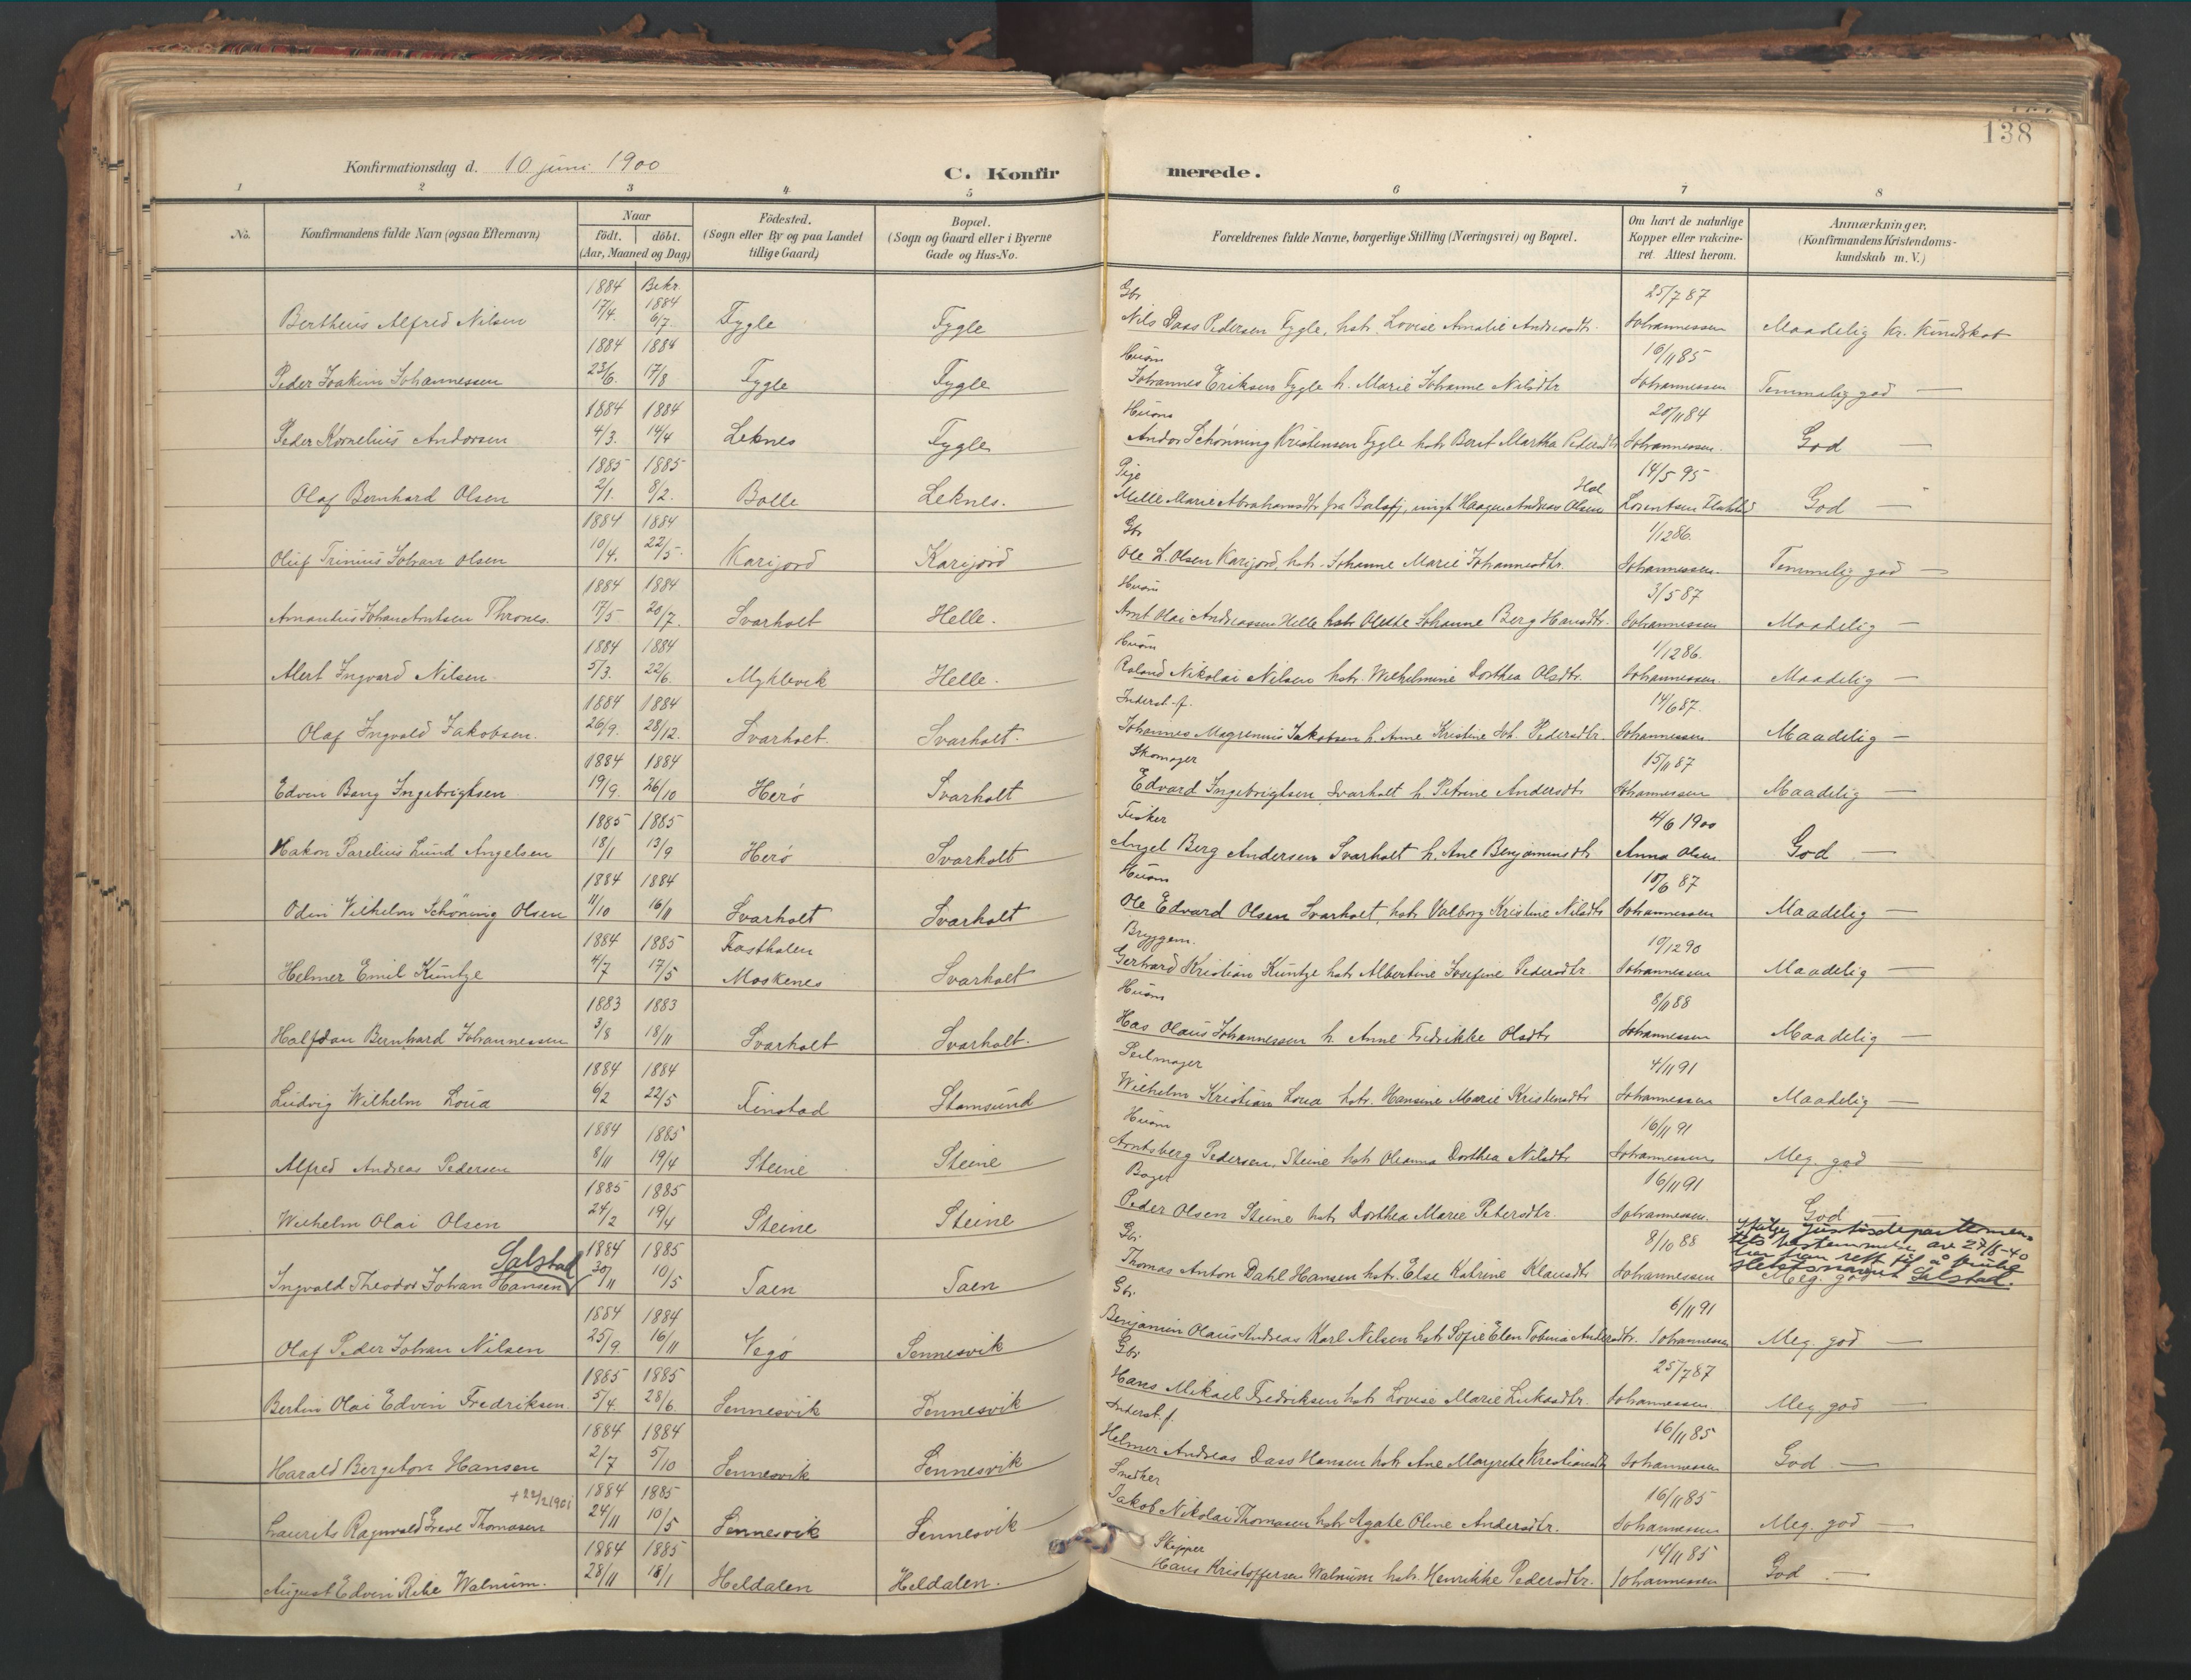 138
Konfirmationsdag d. 10 juni 1900
C. Konfirmerede.
1 2 3 4 5 6 7 8
No. | Konfirmandens fulde Navn (ogsaa Efternavn) | Naar født. døbt. (Aar, Maaned og Dag) | Födested. (Sogn eller By og paa Landet tillige Gaard) | Bopæl. (Sogn og Gaard eller i Byerne Gade og Hus-No. | Forældrenes fulde Navne, borgerlige Stilling (Næringsvei) og Bopæl. | Om havt de naturlige Kopper eller vakcineret. Attest herom. | Anmærkninger. (Konfirmandens Kristendomskundskab m. V.)
Bertheus Alfred Nilsen | 1884 17/4. | Bekr. 1884 6/7. | Fygle | Fygle | Gbr Nils Dass Pedersen Fygle, hstr. Lovise Amalie Andreasdtr. | 25/7 87 Johannessen | Maadelig kr. kundskab
Peder Joakim Johannessen | 1884 23/6. | 1884 17/8 | Fygle | Fygle | Husm Johannes Eriksen Fygle h. Marie Johanne Nilsdtr | 16/11 85 Johannessen | Temmelig god —
Peder Kornelius Andorsen | 1884 4/3. | 1884 14/4 | Leknes | Fygle | Husm Andor Schønning Kristensen Fygle hstr Berit Martha Pedersdtr | 20/11 84 Johannessen. | God —
Olaf Bernhard Olsen | 1885 2/1. | 1885 8/2. | Bolle | Leknes. | Pige Mille Marie Abrahamsdtr fra , ungk Haagen Andreas Olsen Hol | 14/5 95 Lorentsen | God —
Oluf Trinius Johan Olsen | 1884 10/4. | 1884 22/5. | Karijord | Karijord | Gbr Ole L. Olsen Karijord, hstr. Johanne Marie Johannesdtr. | 1/12 86. Johannessen. | Temmelig god —
Amandus Johan Arntsen Thrones. | 1884 17/5 | 1884 20/7. | Svarholt | Helle. | Husm Arnt Olai Andreassen Helle hstr Olette Johanne Berg Hansdtr. | 3/5 87 Johannessen | Maadelig —
Alert Ingvard Nilsen. | 1884 5/3. | 1884 22/6. | Myklevik | Helle. | Husm Roland Nikolai Nilsen hstr. Wilhelmine Dorthea Olsdtr. | 1/12 86. Johannessen. | Maadelig —
Olaf Ingvald Jakobsen. | 1884 26/9. | 1884 28/12. | Svarholt. | Svarholt. | Inderst. f. Johannes Magrenius Jakobsen h. Anne Kristine Joh. Pedersdtr. | 14/6 87. Johannessen | Maadelig —
Edvin Bang Ingebrigtsen | 1884 19/9. | 1884 26/10 | Herø | Svarholt | Skomager Edvard Ingebrigtsen Svarholt h. Petrine Andersdtr | 15/11 87 Johannessen | Maadelig —
Hakon Parelius Lund Angelsen | 1885 18/1 | 1885 13/9 | Herø | Svarholt | Fisker Angel Berg Andersen Svarholt h. Ane Benjaminsdtr | 4/6 1900 Anna Olsen | God —
Odin Vilhelm Schöning Olsen | 1884 11/10 | 1884 16/11 | Svarholt | Svarholt | Husm Ole Edvard Olsen Svarholt, hstr Valborg Kristine Nilsdtr | 10/6 87 Johannessen | Maadelig —
Helmer Emil Kuntze | 1884 4/7 | 1885 17/5 | Fasthalen Moskenes | Svarholt | Bryggem. Gerhard Kristian Kuntze hstr Albertine Josefine Pedersdtr. | 10/12 90 Johannessen | Maadelig —
Halfdan Bernhard Johannessen | 1883 3/8 | 1883 18/11 | Svarholt | Svarholt. | Husm Has Olaus Johannessen h. Anne Fredrikke Olsdtr | 8/11 88 Johannessen | Maadelig —
Ludvig Wilhelm Loua | 1884 6/2 | 1884 22/5 | Finstad | Stamsund | Seilmager Wilhelm Kristian Loua hstr. Hansine Marie Kristensdtr | 4/11 91 Johannessen | Maadelig —
Alfred Andreas Pedersen | 1884 8/11 | 1885 19/4 | Steine | Steine | Husm Arntsberg Pedersen, Steine hstr Oleanna Dorthea Nilsdtr | 16/11 91 Johannessen | Meg. god —
Wilhelm Olai Olsen | 1885 24/2 | 1885 19/4 | Steine | Steine | Bager Peder Olsen Steine hstr Dorthea Marie Petersdtr. | 16/11 91 Johannessen. | God —
Ingvald Theodor Johan Hansen Salstad | 1884 30/11 | 1885 10/5 | Taen | Taen | Gbr. Thomas Anton Dahl Hansen hstr. Else Katrine Klausdtr | 8/10 88 Johannessen | Ifølge Justisdepartementets bestemmelse av 27/8-40 har han rett til å bruke slektsnavnet Salstad. Meg. god
Olaf Peder Johan Nilsen | 1884 25/9. | 1884 16/11 | Vegø | Sennesvik | Gbr. Benjamin Olaus Andreas Karl Nilsen hstr Sofie Elen Tobine Andersdtr. | 6/11 91 Johannessen | Meg. god —
Bertin Olai Edvin Fredriksen. | 1885 5/4. | 1885 28/6. | Sennesvik | Sennesvik | Gbr Hans Mikael Fredriksen hstr Lovise Marie Lukasdtr. | 25/7 87 Johannessen. | Meg god —
Harald Bergiton Hansen | 1884 2/7 | 1884 5/10 | Sennesvik | Sennesvik | Inderst. f. Helmer Andreas Dass Hansen hstr Ane Margrete Kristiansdtr | 16/11 85 Johannessen | God —
Laurits Ragnvald Greve Thomasen +22/2 1901 | 1884 24/11 | 1885 10/5 | Sennesvik | Sennesvik | Snedker Jakob Nikolai Thomasen hstr Agate Oline Andersdtr. | 16/11 85 Johannessen | Meg. god —
August Edvin Rike Walnum. | 1884 28/11 | 1885 18/1 | Heldalen | Heldalen. | Skipper Hans Kristoffersen Walnum hstr. Henrikke Pedersdtr. | 14/11 85 Johannessen | God —